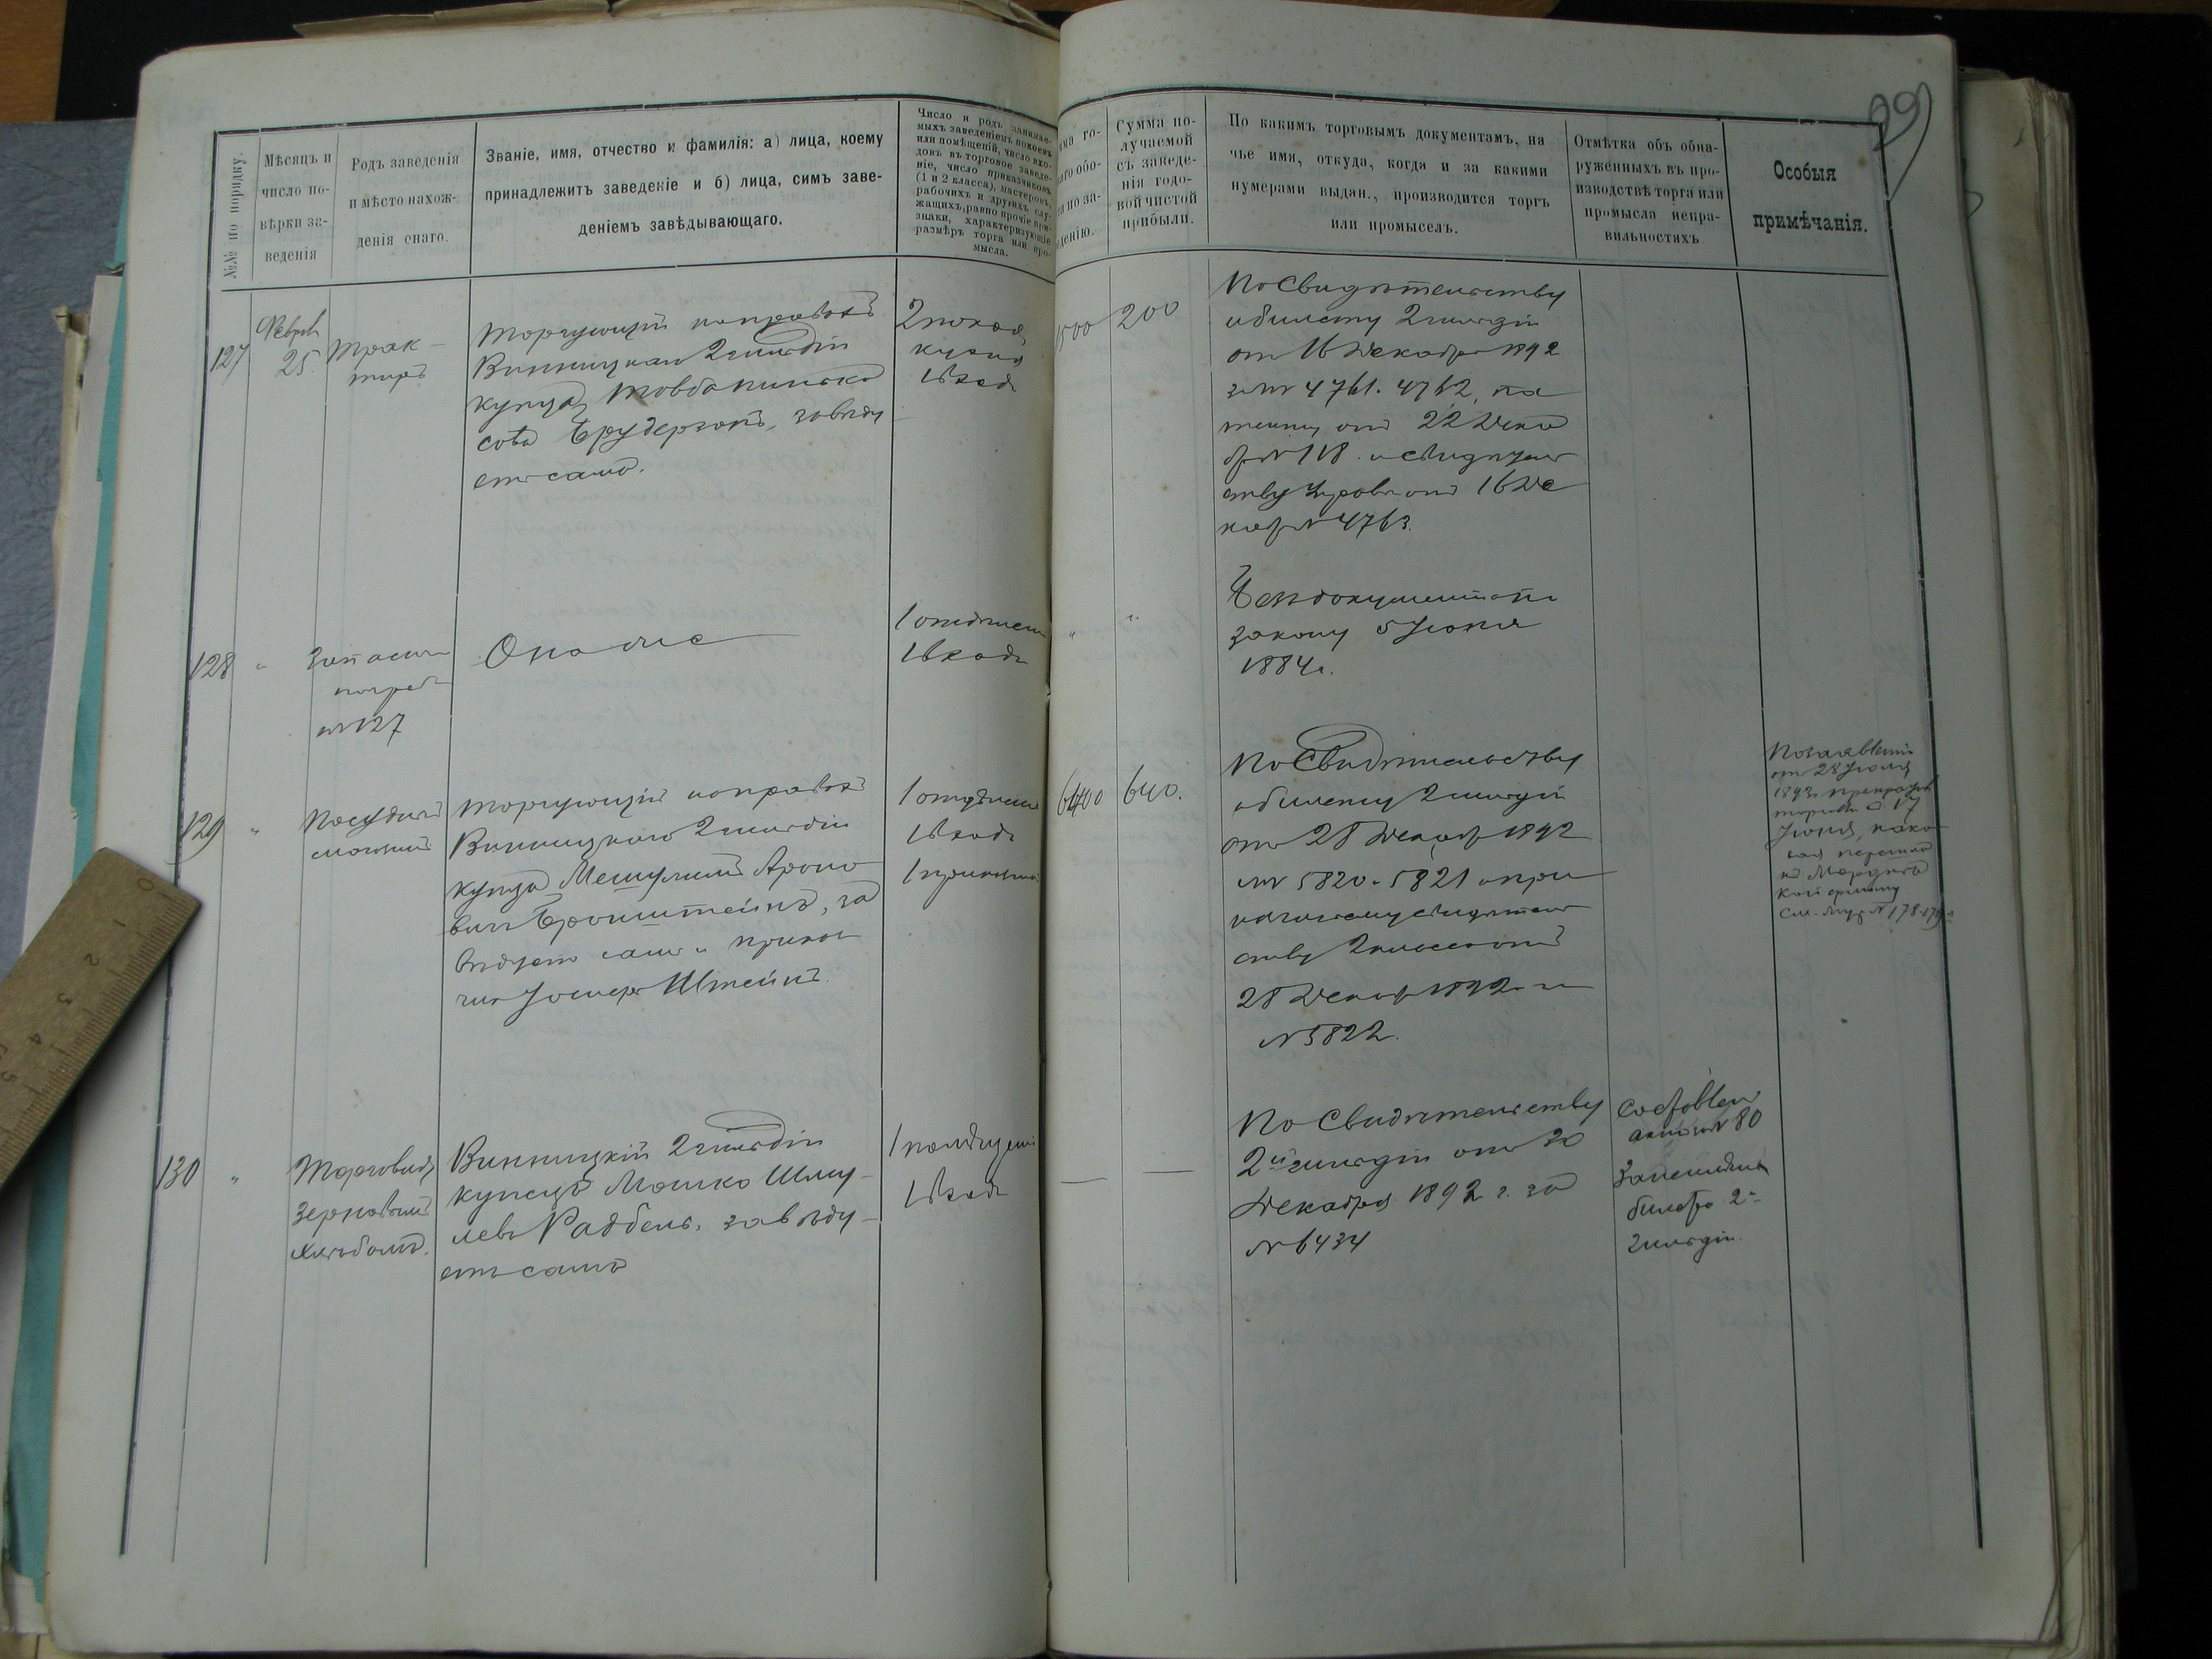 99
№№ по порядку.
Мѣсяцъ и
число по-
вѣрки за-
веденія
Родъ заведенія
и мѣсто нахож-
денія онаго.
Званіе, имя, отчество и фамилія: а) лица, коему
принадлежитъ заведеніе и б) лица, симъ заве-
деніемъ завѣдывающаго.
Число и родъ занимае-
мыхъ заведеніемъ покоевъ
или помѣщеній, число вхо-
довъ въ торговое заведе-
ніе, число приказчиковъ
(1 и 2 класса), мастеровъ,
рабочихъ и другихъ слу-
жащихъ, равно прочіе при-
знаки, характеризующіе
размѣръ торга или про-
мысла.
ма го-
аго обо-
а по за-
денію.
Сумма по-
лучаемой
съ заведе-
нія годо-
вой чистой
прибыли.
По какимъ торговымъ документамъ, на
чье имя, откуда, когда и за какими
нумерами выдан., производится торгъ
или промыселъ.
Отмѣтка объ обна-
руженныхъ въ про-
изводствѣ торга или
промысла непра-
вильностяхъ
Особыя
примѣчанія.
127
Февр
25.
Трак-
тиръ
Торгующій на правахъ
Винницкаго 2 гильдіи
купца
завѣду
етъ самъ.
2 покоя
кухня
1 входъ
1500
200
По Свидѣтельству
и билету 2 гильдіи
отъ 16 Декабря 1892
за № 4761. 4762, па
тенту отъ 22 Дека
бря № 118 и свидѣтель
ству отъ 16 Де
кабр № 4763.
128
"
Запасный
погребъ
№ 127
Онъ же
1 отдѣлен
1 входъ
"
"
Безъ документа по
закону 5 Іюня
1884 г.
129
"
Посудный
Торгующій на правахъ
Винницкаго 2 гильдіи
купца Мешулимъ Ароно
вичъ Бронштейнъ, за
вѣдуетъ самъ и прикащ
Штейнъ.
1 отдѣлен
1 входъ
1 прикащ
6400
640.
По Свидѣтельству
и билету 2 гильдіи
отъ 28 Декабр 1892
№№ 5820 и 5821 и при
кащичьему свидѣтель
ству 2 класса отъ
28 Декабр 1892 за
№ 5822.
По заявленію
от 28 Іюня
1893 г. прекратилъ
торговлю съ 17
Іюня,
см. № 178-179
130
"
Торговля
зерновымъ
хлѣбомъ.
Винницкій 2 гильдіи
купецъ Мошко Шму-
левъ Раббель. завѣду-
етъ самъ
1 помѣщеніе
1 входъ
—
—
По Свидѣтельству
2й гильдіи отъ 30
Декабря 1892 г. за
№ 6434
Составленъ
актъ за № 80
билета 2й
гильдіи.